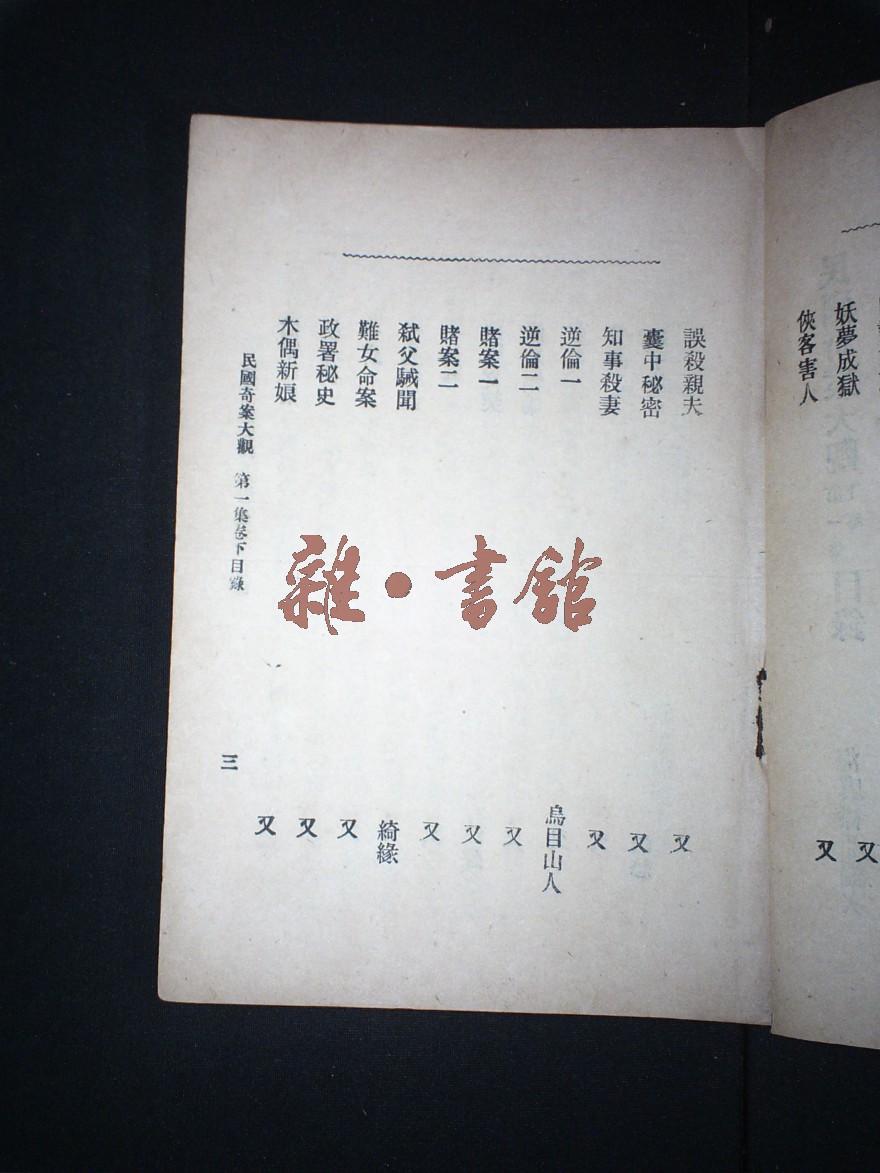 妖夢成獄 又
俠客害人 又
誤殺親夫 又
囊中秘密 又
知事殺妻 又
逆倫一 烏目山人
逆倫二 又
賭案一 又
賭案二 又
弑父駴聞 綺緣
難女命案 又
政署秘史 又
木偶新娘 又
民國奇案大觀 第一集卷下目錄 三
雜·書館